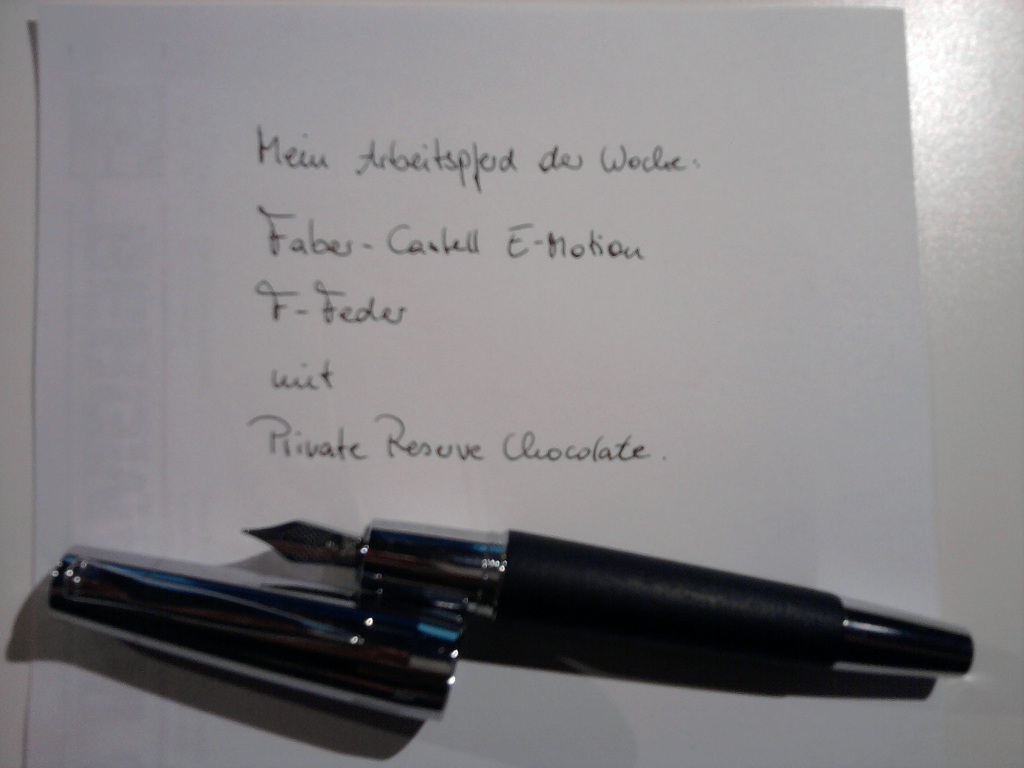 Mein Arbeitspferd der Woche:
Faber-Castell E-Motion
F-Feder
mit
Private Reserve Chocolate.